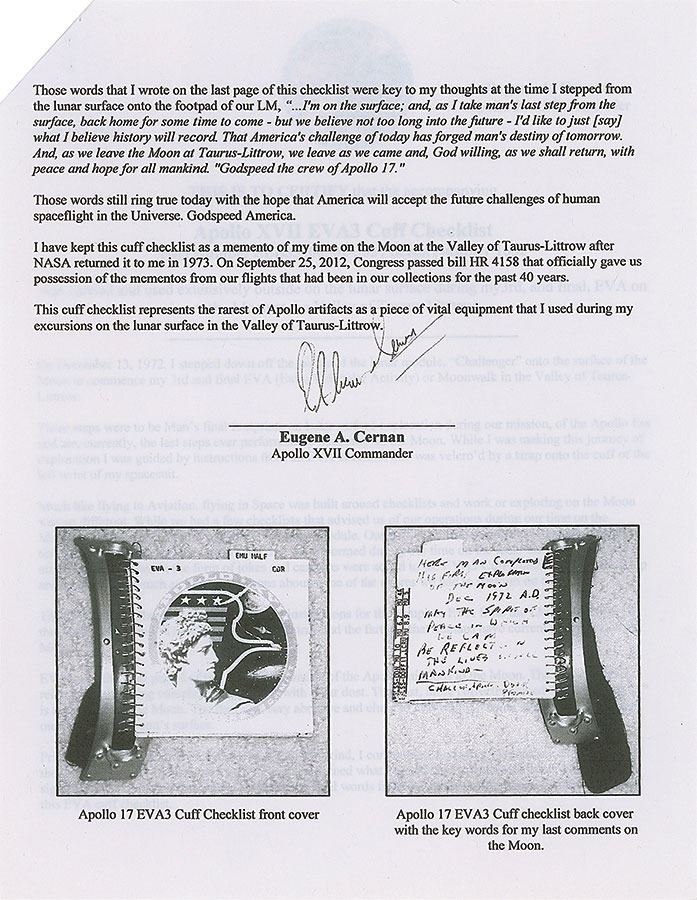 Those words that I wrote on the last page of this checklist were key to my thoughts at the time I stepped from
the lunar surface onto the footpad of our LM, "...I'm on the surface; and, as I take man's last step from the
surface, back home for some time to come - but we believe not too long into the future - I'd like to just [say]
what I believe history will record. That America's challenge of today has forged man's destiny of tomorrow.
And, as we leave the Moon at Taurus-Littrow, we leave as we came and, God willing, as we shall return, with
peace and hope for all mankind. "Godspeed the crew of Apollo 17."
Those words still ring true today with the hope that America will accept the future challenges of human
spaceflight in the Universe. Godspeed America.
I have kept this cuff checklist as a memento of my time on the Moon at the Valley of Taurus-Littrow after
NASA returned it to me in 1973. On September 25, 2012, Congress passed bill HR 4158 that officially gave us
possession of the mementos from our flights that had been in our collections for the past 40 years.
This cuff checklist represents the rarest of Apollo artifacts as a piece of vital equipment that I used during my
excursions on the lunar surface in the Valley of Taurus-Littrow.
Eugene A. Cernan
Apollo XVII Commander
EMU MALF
EVA - 3 CDR
HERE MAN COMPLETED
HIS FIRST EXPLORATION
OF THE MOON
DEC 1972 A.D.
MAY THE SPIRIT OF
PEACE IN WHICH
WE CAME
BE REFLECTED
THE LIVES
MANKIND
Apollo 17 EVA3 Cuff Checklist front cover
Apollo 17 EVA3 Cuff checklist back cover
with the key words for my last comments on
the Moon.